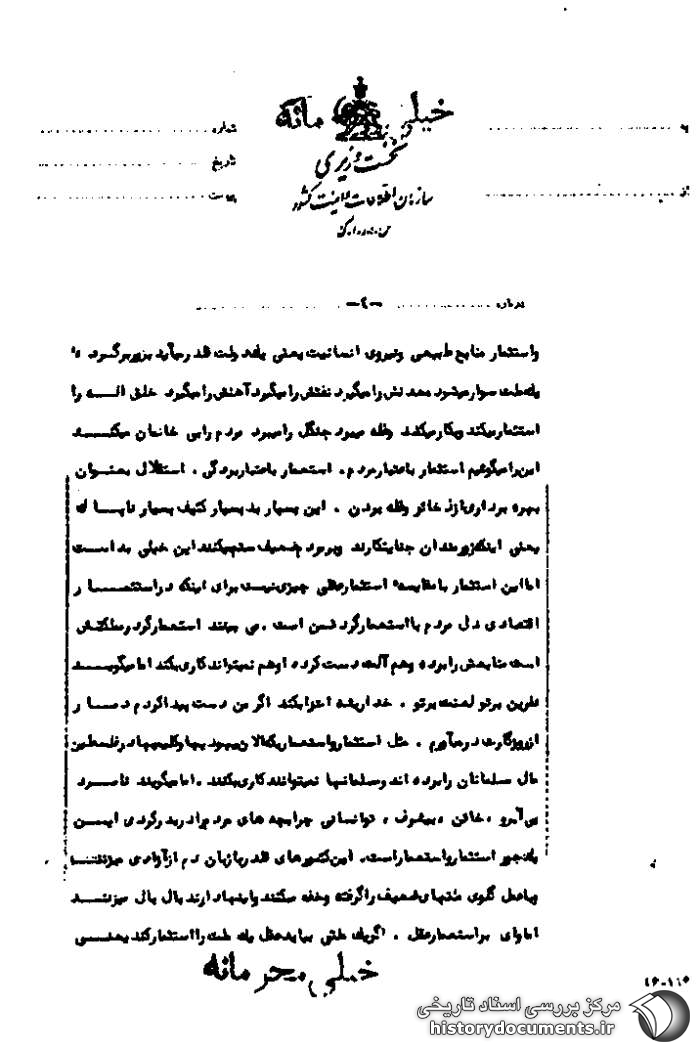 خیلی محرمانه
نخست وزیری
سازمان اطلاعات و امنیت کشور
شماره
تاریخ
پیوست
به
از
درباره -۴-
و استثمار منابع طبیعی و نیروی انسانیت یعنی یک دولت قلدر میآید بزور برگرده
یک ملت سوار میشود معدنش را میگیرد نفتش را میگیرد آهنش را میگیرد خلق الله را
استثمار میکند بیکار میکند وقله میبرد جنگل را میبرد مردم را بی خانمان میکند
این را میگوئیم استثمار باعتبار مردم. استعمار باعتبار بردگی. استقلال بعنوان
بهره برداری از ذخائر وقله بردن. این بسیار بد بسیار کثیف بسیار ناپاک
یعنی اینکه زورمندان جنایتکارند وبر مردم ضعیف ستم میکنند این خیلی بد است
اما این استثمار با مقایسه استثمار عقلی چیزی نیست برای اینکه در استثمار
اقتصادی دل مردم با استعمارگر دشمن است. می بینند استعمارگر در مملکتش
است منابعش را برده وهم آلت دست کرده اوهم نمیتواند کاری بکند اما میگوید
نفرین برتو لعنت برتو. خدا ریشه اترا بکند اگر من دست پیدا کردم دمار
از روزگارت درمیآورم. مثل استثمار واستعماریکه الان یهودیها وکلیمیها در فلسطین
مال مسلمانان را برده اند ومسلمانها نمیتوانند کاری بکنند. اما میگویند نامرد
بی آبرو، خائن، بیشرف، توانسانی چرا بچه های مردم را دربدر کردی این
یکجور استثمار واستعمار است. این کشورهای قلدر با زبان دم از آزادی میزنند
وبا عمل گلوی ملتهای ضعیف را گرفته وخفه میکنند واینها دارند بال بال میزنند
اما وای بر استعمار عقل. اگریک ملتی بیاید عقل یک ملت را استثمار کند یعنی
خیلی محرمانه
۱۱۵-۱۶
مرکز بررسی اسناد تاریخی
historydocuments.ir